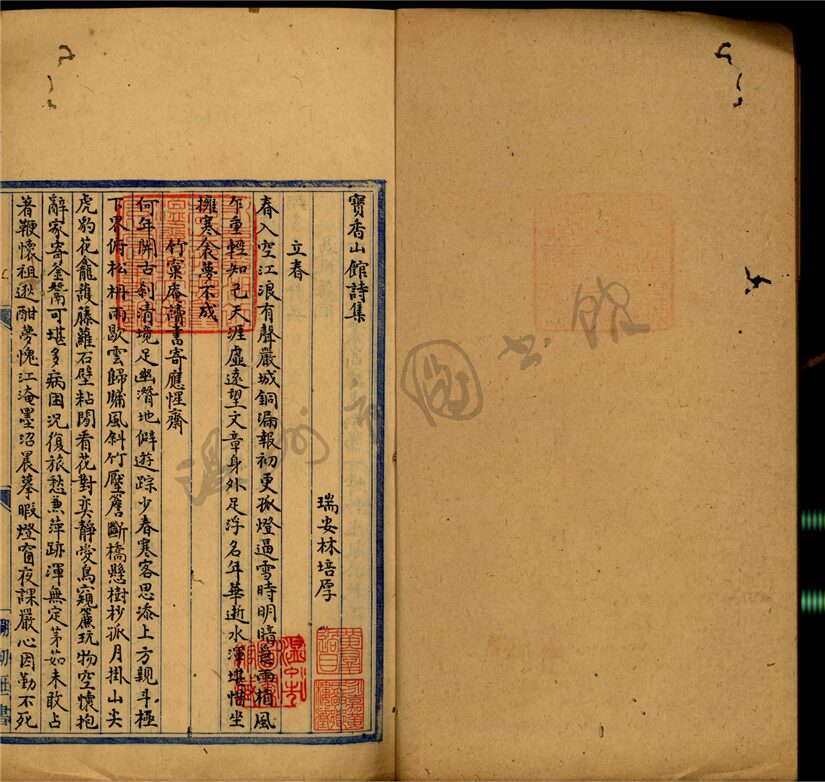 寶香山館詩集
瑞安林培厚
立春
春入空江浪有聲嚴城銅漏報初更孤燈逼雪時明暗雨横風
乍重輕知己天涯虛遠望文章身外足浮名年華逝水渾堪惜坐
擁寒衾夢不成
竹窠庵讀書寄應惺齋
何年開古刹清境足幽潛地僻遊踪少春寒客思添上方親斗極
下界俯松枏雨歇雲歸牖風斜竹壓簷斷橋懸樹杪孤月掛山尖
虎豹花龕護藤蘿石壁粘閒看花對奕靜愛鳥窺簾玩物空懷抱
辭家寄釜鬵可堪多病困况復旅愁兼萍跡渾無定茅茹未敢占
著鞭懷祖逖酣夢愧江淹墨沼晨摹暇燈窗夜課嚴心因勤不死
温州市圖書館